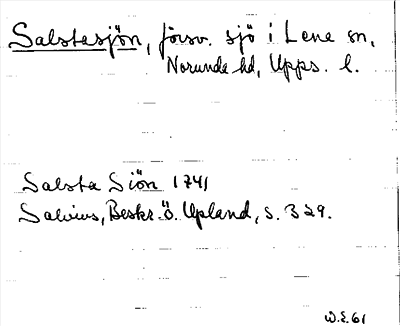 Salstasjön, försv. sjö i Lena sn,
Norunda hd, Upps. l.
Salsta Siön 1741
Salvius, Beskr. ö. Upland, s. 329.
W.E. 61